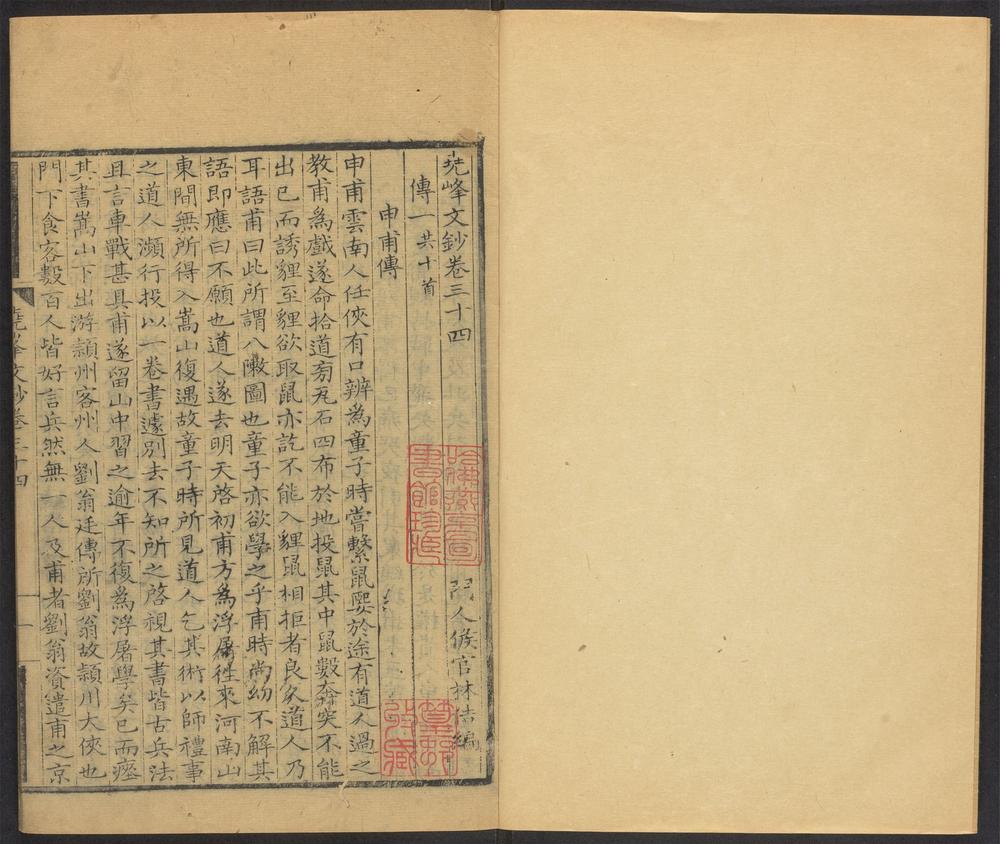 堯峰文鈔卷三十四
門人侯官林佶編
傳一共十首
申甫傳
申甫雲南人任俠有口辨為童子時嘗繫鼠嬰於途有道人過之
教甫為戲遂命拾道旁瓦石四布於地投鼠其中鼠數奔突不能
出已而誘貍至貍欲取鼠亦訖不能入貍鼠相拒者良久道人乃
耳語甫曰此所謂八陣圖也童子亦欲學之乎甫時尚幼不解其
語即應曰不願也道人遂去明天啓初甫方為浮屠徃來河南山
東間無所得入嵩山復遇故童子時所見道人乞其術以師禮事
之道人瀕行投以一卷書遽別去不知所之啓視其書皆古兵法
且言車戰甚具甫遂留山中習之逾年不復為浮屠學矣已而瘞
其書嵩山下出游潁州客州人劉翁廷傳所劉翁故潁川大俠也
門下食客數百人皆好言兵然無一人及甫者劉翁資遣甫之京
堯峰文鈔卷三十四
一
哈佛燕京圖書館珍藏